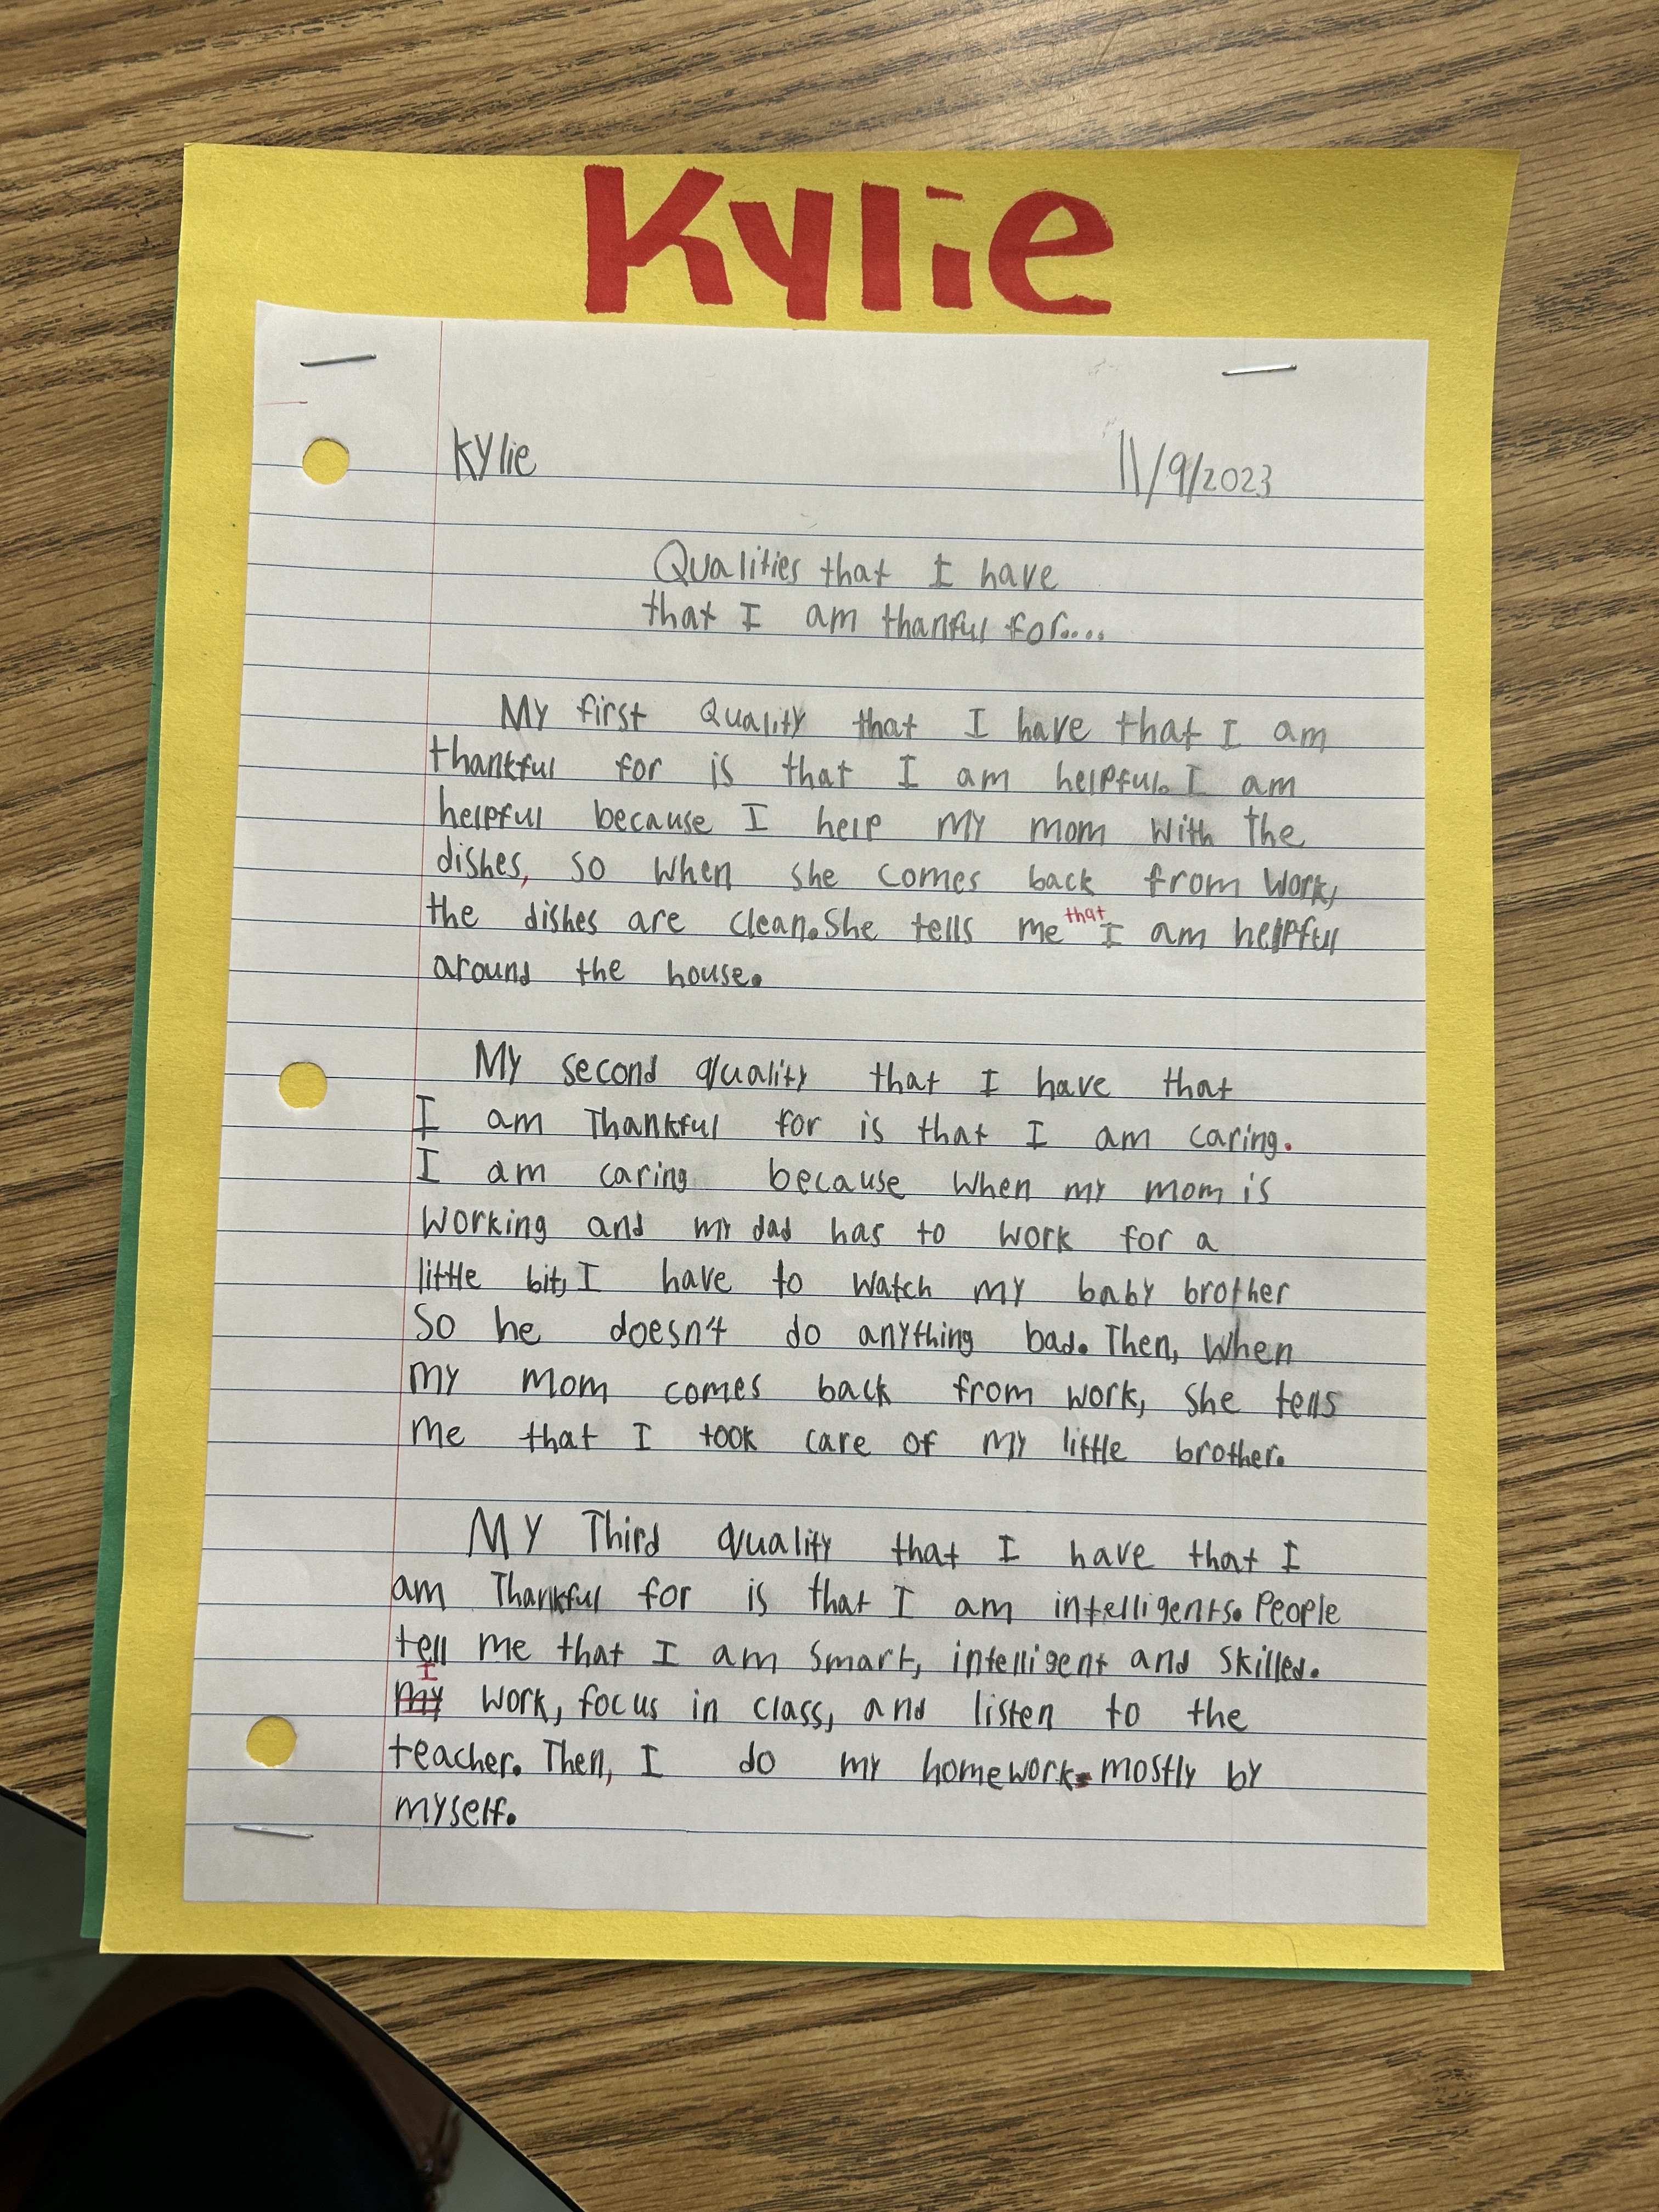 Kylie
Kylie 11/9/2023
Qualities that I have
that I am thanful for....
My first Quality that I have that I am
thankful for is that I am helpful. I am
helpful because I help my mom with the
dishes, so when she comes back from work,
the dishes are clean. She tells me that I am helpful
around the house.
My second quality that I have that
I am Thankful for is that I am caring.
I am caring because when my mom is
working and my dad has to work for a
little bit, I have to watch my baby brother
So he doesn't do anything bad. Then, when
my mom comes back from work, she tells
me that I took care of my little brother.
My Third quality that I have that I
am Thankful for is that I am intelligents. People
tell me that I am smart, intelligent and skilled.
I
my work, focus in class, and listen to the
teacher. Then, I do my homework mostly by
myself.